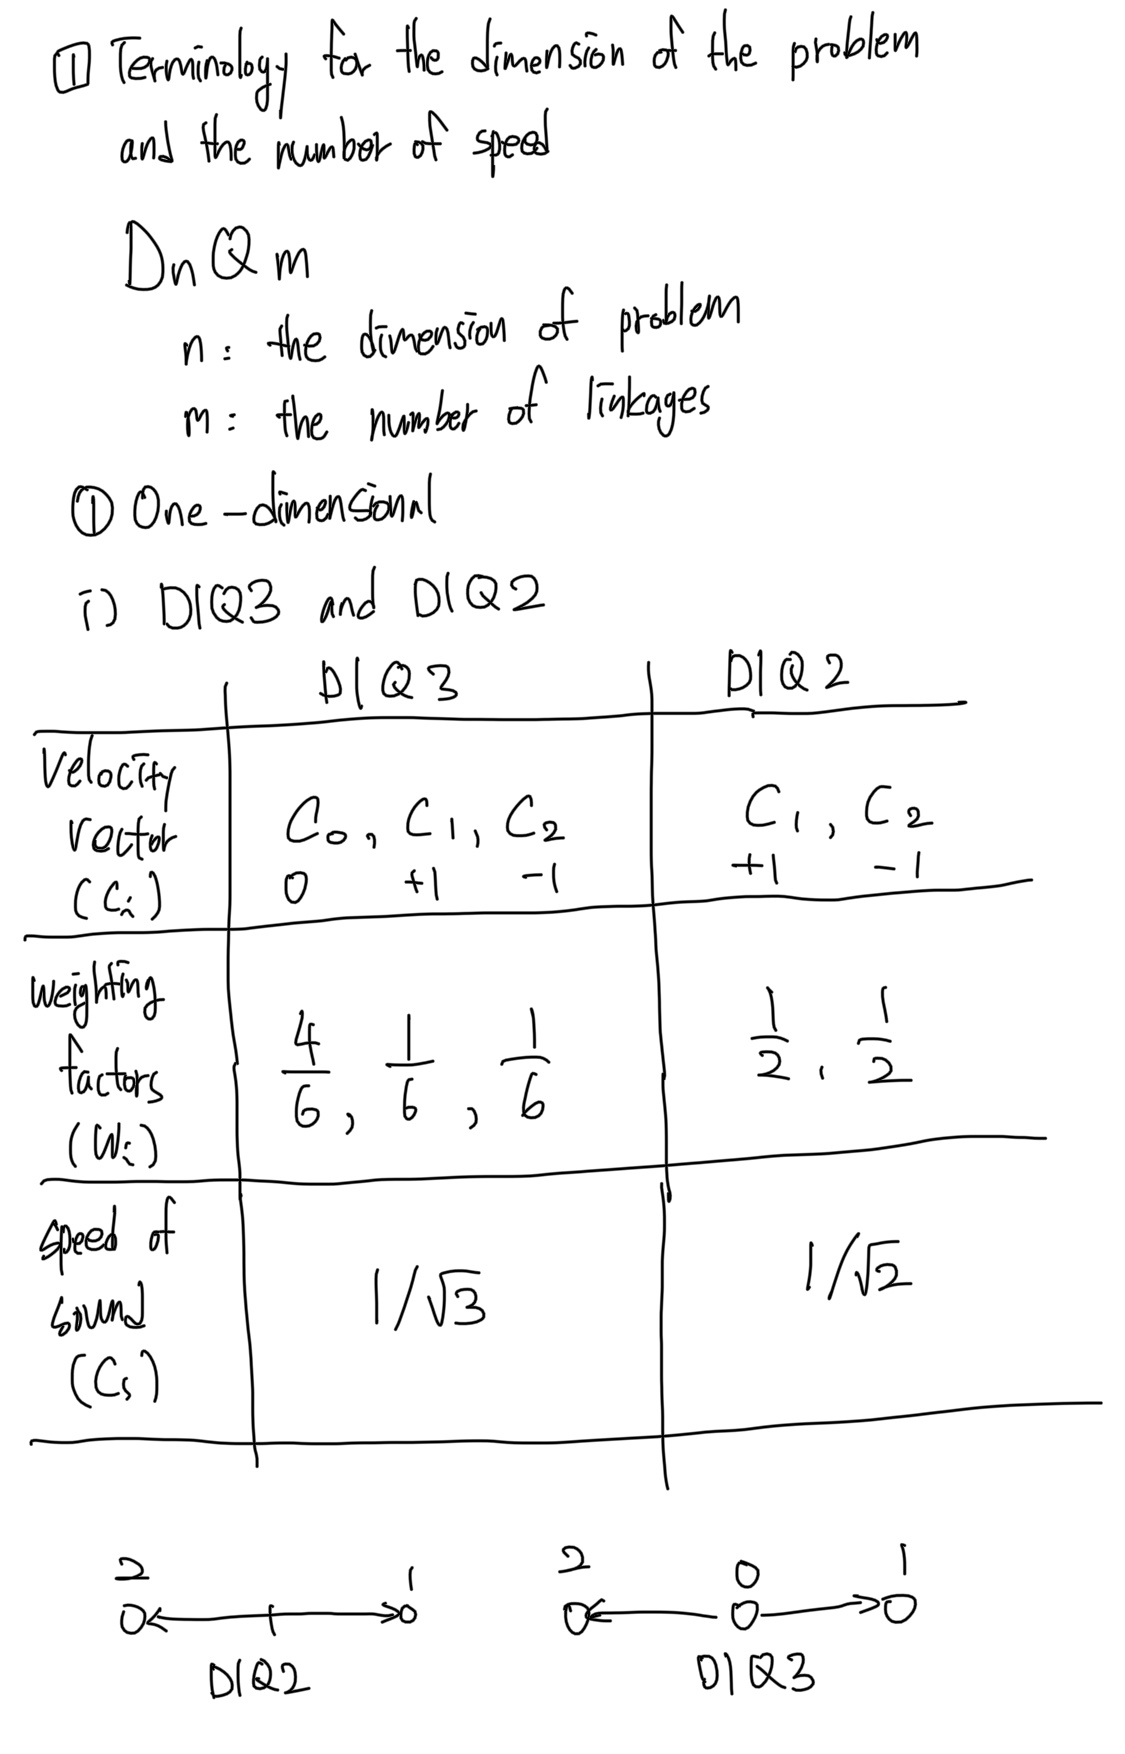 ① Terminology for the dimension of the problem
and the number of speed
DnQm
n: the dimension of problem
m: the number of linkages
① One-dimensional
i) D1Q3 and D1Q2
D1Q3 D1Q2
Velocity
vector
(Ci)
C0, C1, C2
0 +1 -1
C1, C2
+1 -1
Weighting
factors
(Wi)
4/6, 1/6, 1/6
1/2, 1/2
speed of
sound
(Cs)
1/√3
1/√2
2 1
D1Q2
2 0 1
D1Q3